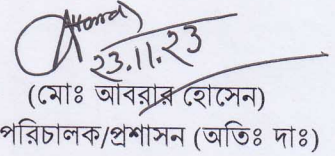 23.11.23
(মোঃ আবরার হোসেন)
পরিচালক/প্রশাসন (অতিঃ দাঃ)